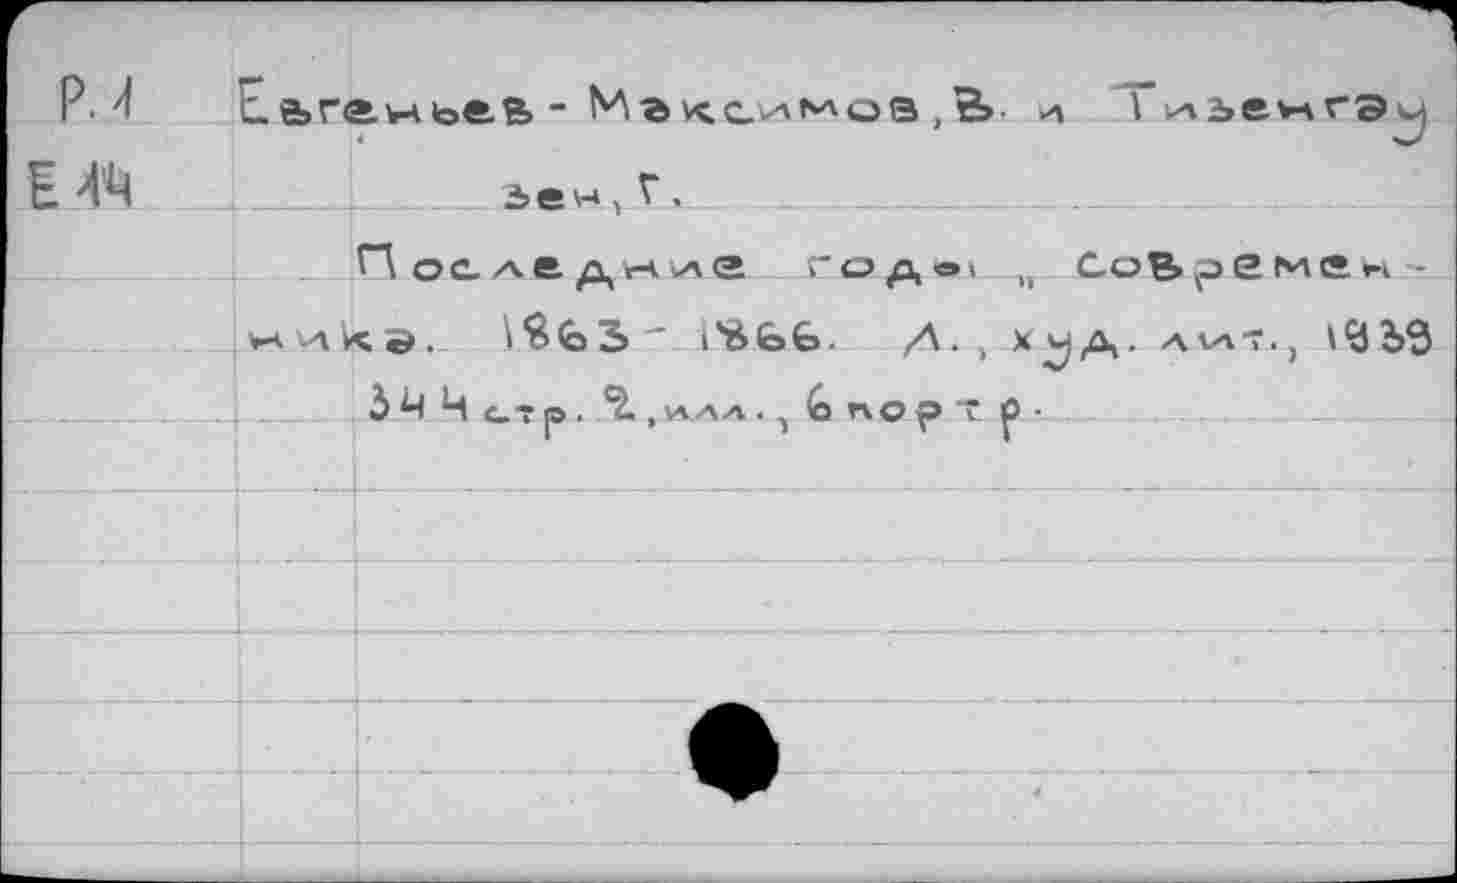 Р.1 Евгеньев-Максимов,В. и Тизенгау
Е14 зен,Г.
Последние годы „Современ-
ника. 1863-1866. Л., худ. лит., 1939
344 стр. 2.,илл., 6 портр.